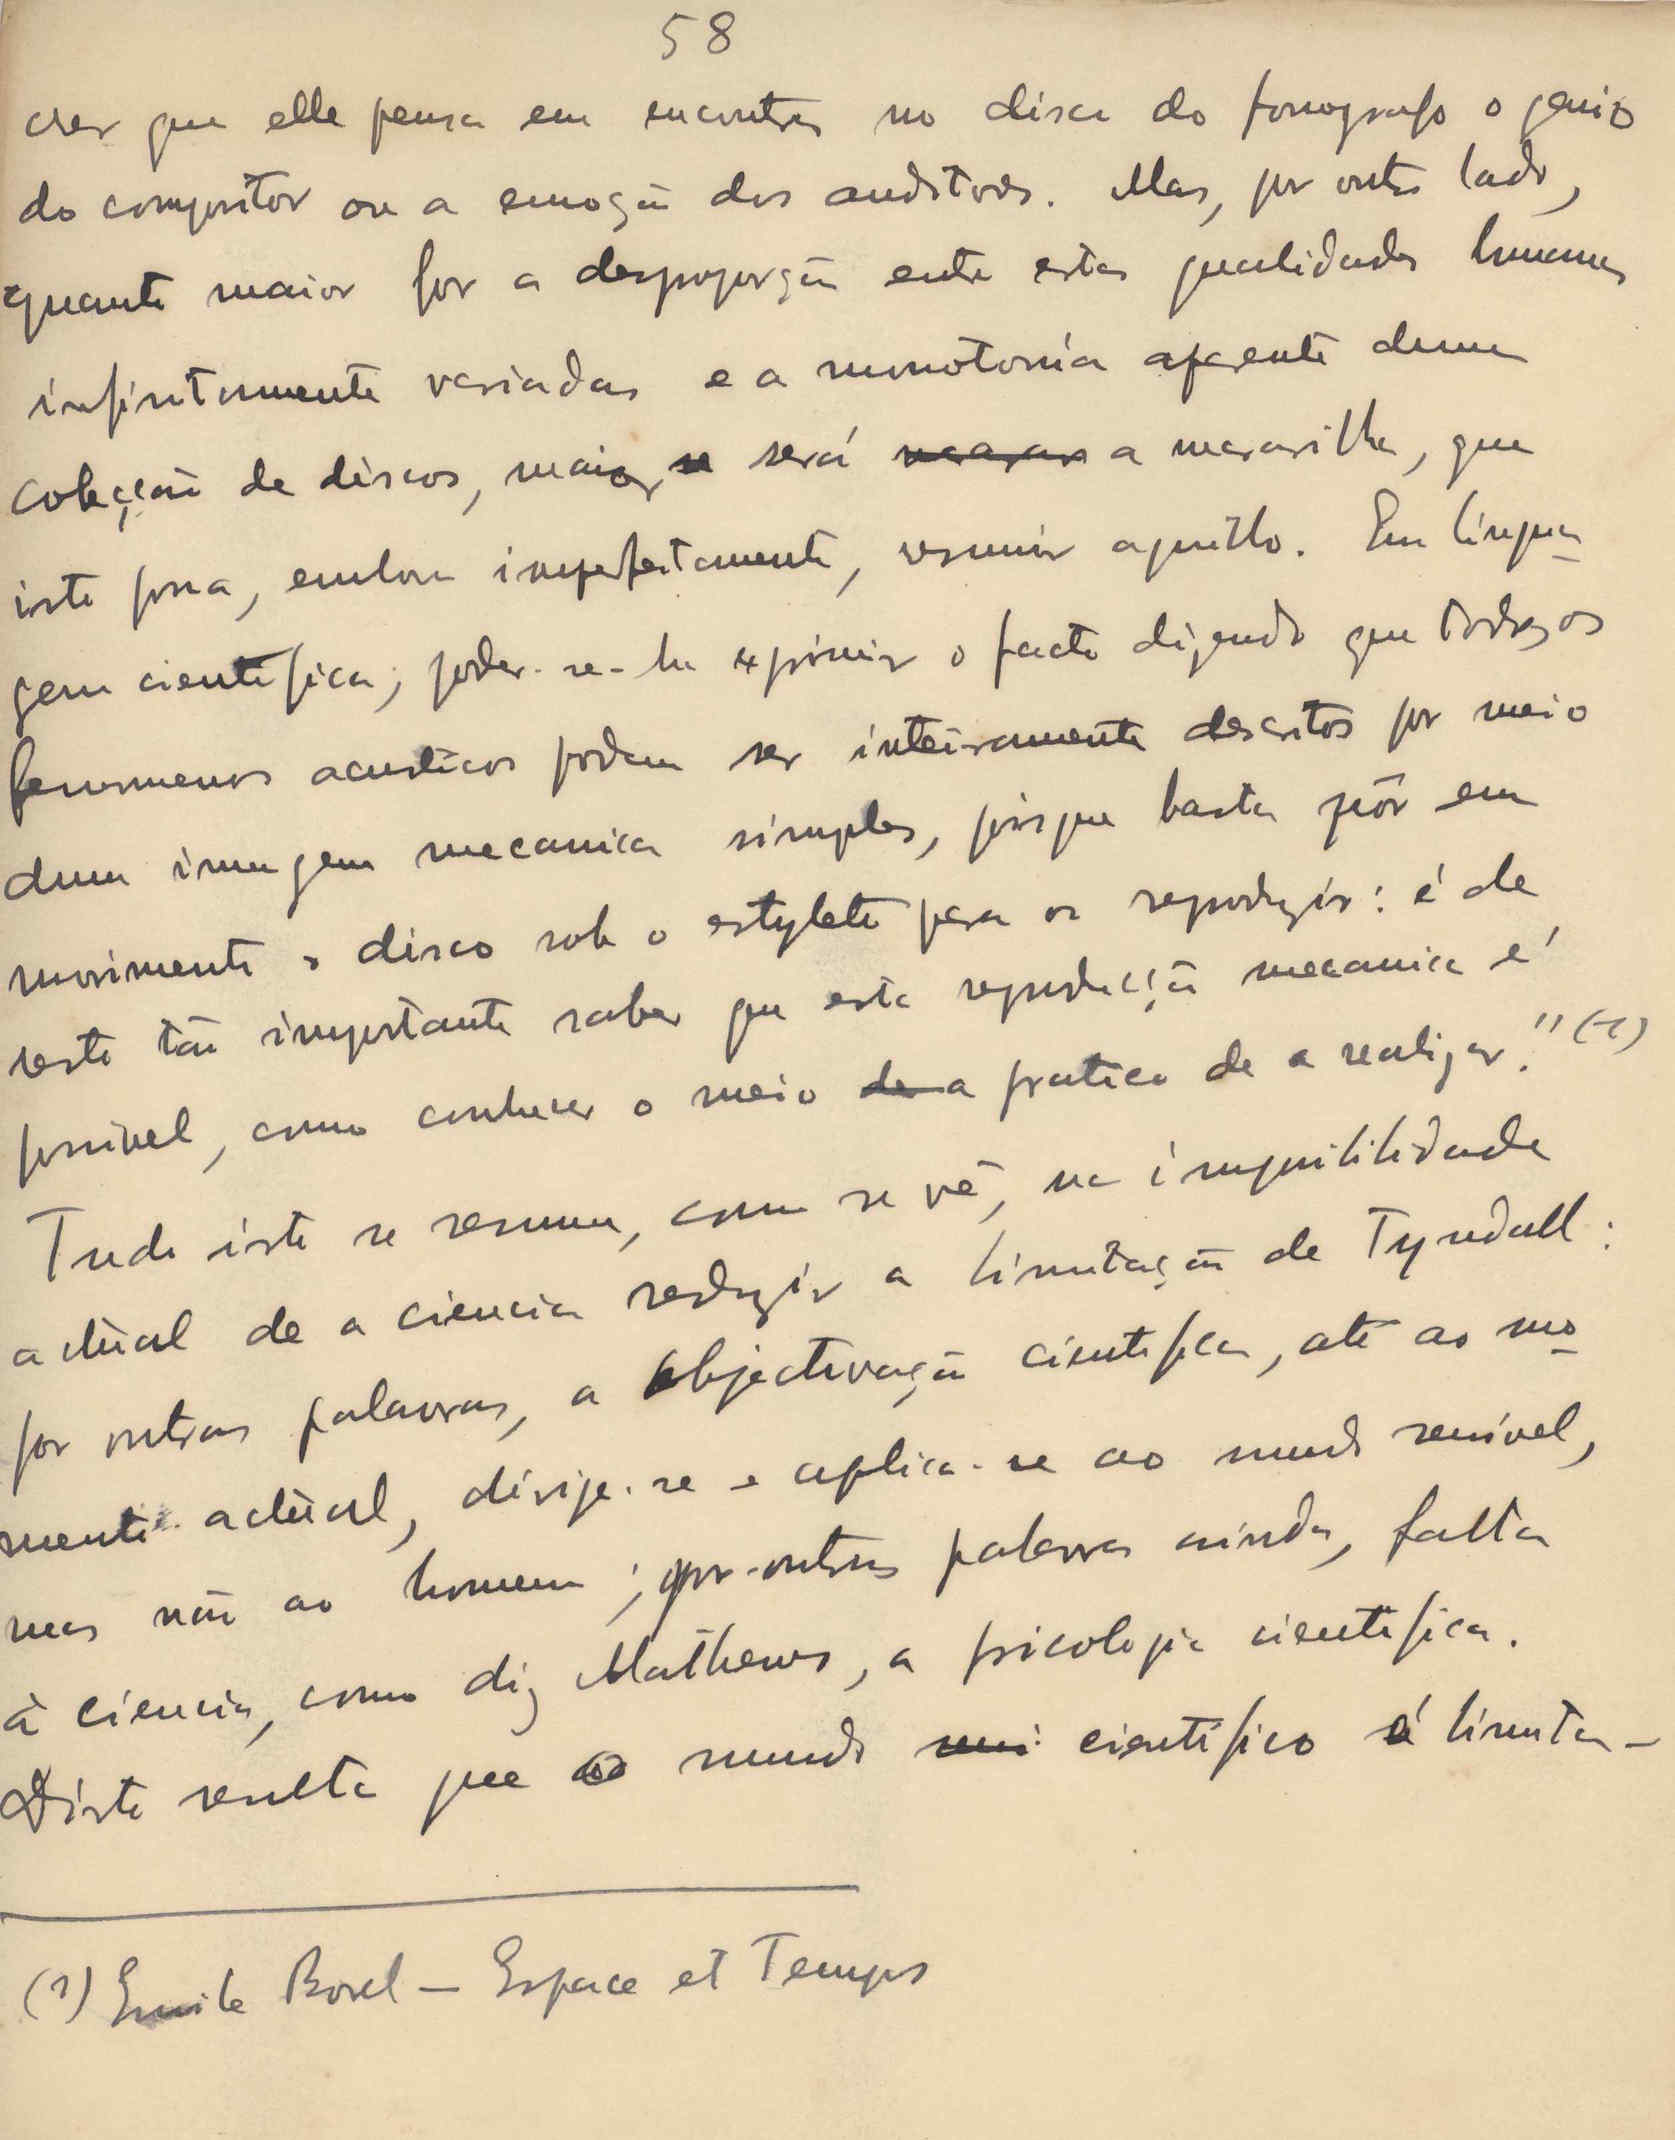 58
crer que elle pensa em encontrar no disco do fonografo o genio
do compositor ou a emoção dos auditores. Mas, por outro lado,
quanto maior for a desproporção entre estas qualidades humanas
infinitamente variadas e a monotonia aparente duma
colecção de discos, maior se será a maravilha, que
isto possa, embora imperfeitamente, resumir aquillo. Em lingua-
gem cientifica, poder-se-ha exprimir o facto dizendo que todos os
fenomenos acusticos podem ser inteiramente descritos por meio
duma imagem mecanica simples, pois que basta pôr em
movimento o disco sob o estylete para os reproduzir: é de
resto tão importante saber que esta reproducção mecanica é
possivel, como conhecer o meio de a pratico de a realizar." (1)
Tudo isto se resume, como se vê, na impossibilidade
actual de a ciencia reduzir a limitação de Tyndall:
por outras palavras, a objectivação cientifica, até ao mo-
mento actual, dirije-se e aplica-se ao mundo sensivel,
mas não ao homem; por outras palavras ainda, falta
à ciencia, como diz Mathews, a psicologia cientifica.
Disto resulta que o mundo cientifico é limita-
(1) Emile Borel - Espace et Temps